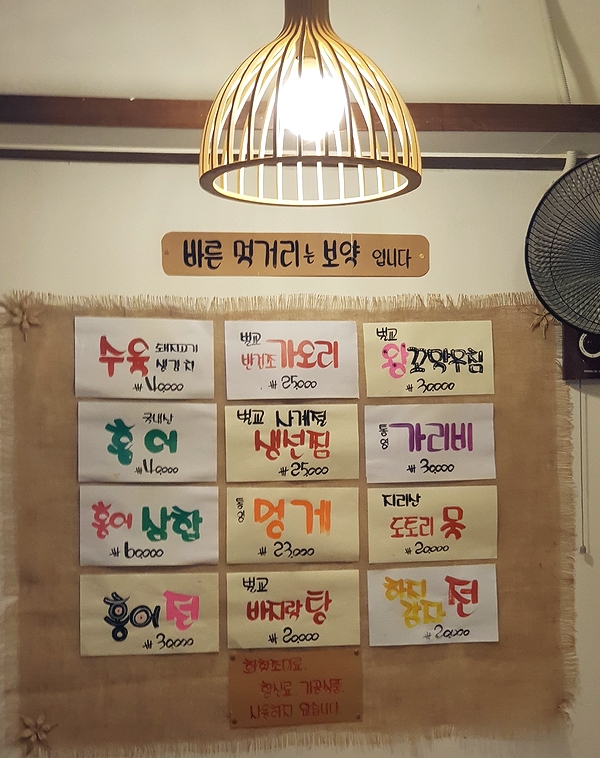 바른 먹거리는 보약 입니다
수육 돼지고기
생김치
₩40,000
벌교
반건조 가오리
₩25,000
벌교
왕꼬막무침
₩30,000
국내산
홍어
₩40,000
벌교 사계절
생선찜
₩25,000
통영 가리비
₩30,000
홍어 삼합
₩60,000
통영 멍게
₩23,000
지리산
도토리묵
₩20,000
홍어전
₩30,000
벌교
바지락탕
₩20,000
하지
감자전
₩20,000
화학조미료.
합신료 가공식품.
사용하지 않습니다